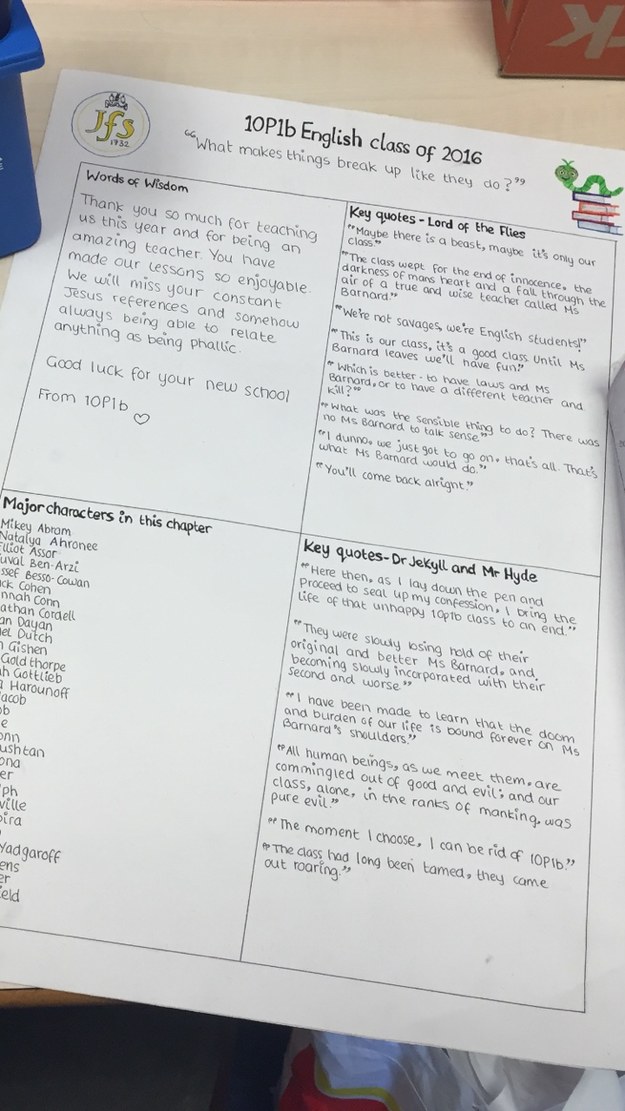 Jfs
1732
10P1b English class of 2016
"What makes things break up like they do?"
Words of Wisdom
Thank you so much for teaching
us this year and for being an
amazing teacher. You have
made our lessons so enjoyable.
We will miss your constant
Jesus references and somehow
always being able to relate
anything as being phallic.
Good luck for your new school
From 10P1b
Key quotes - Lord of the Flies
"Maybe there is a beast, maybe it's only our
class"
"The class wept for the end of innocence, the
darkness of mans heart and a fall through the
air of a true and wise teacher called Ms
Barnard"
"We're not savages, we're English students!"
"This is our class, it's a good class. Until Ms
Barnard leaves we'll have fun"
"Which is better - to have laws and Ms
Barnard, or to have a different teacher and
kill?"
"What was the sensible thing to do? There was
no Ms Barnard to talk sense"
"I dunno, we just got to go on, that's all. That's
what Ms Barnard would do."
"You'll come back alright."
Major characters in this chapter
Mikey Abram
Natalya Ahronee
Elliot Assor
uval Ben-Arzi
ssef Besso-Cowan
ck Cohen
nnah Conn
athan Cordell
an Dayan
el Dutch
Gishen
Goldthorpe
h Gottlieb
Harounoff
acob
ob
e
onn
ushtan
ona
er
ph
ville
oira
Yadgaroff
ens
er
ield
Key quotes - Dr Jekyll and Mr Hyde
"Here then, as I lay down the pen and
proceed to seal up my confession, I bring the
life of that unhappy 10p1b class to an end."
"They were slowly losing hold of their
original and better Ms Barnard, and
becoming slowly incorporated with their
second and worse"
"I have been made to learn that the doom
and burden of our life is bound forever on Ms
Barnard's shoulders."
"All human beings, as we meet them, are
commingled out of good and evil: and our
class, alone, in the ranks of manking, was
pure evil."
"The moment I choose, I can be rid of 10P1b."
"The class had long been tamed, they came
out roaring."